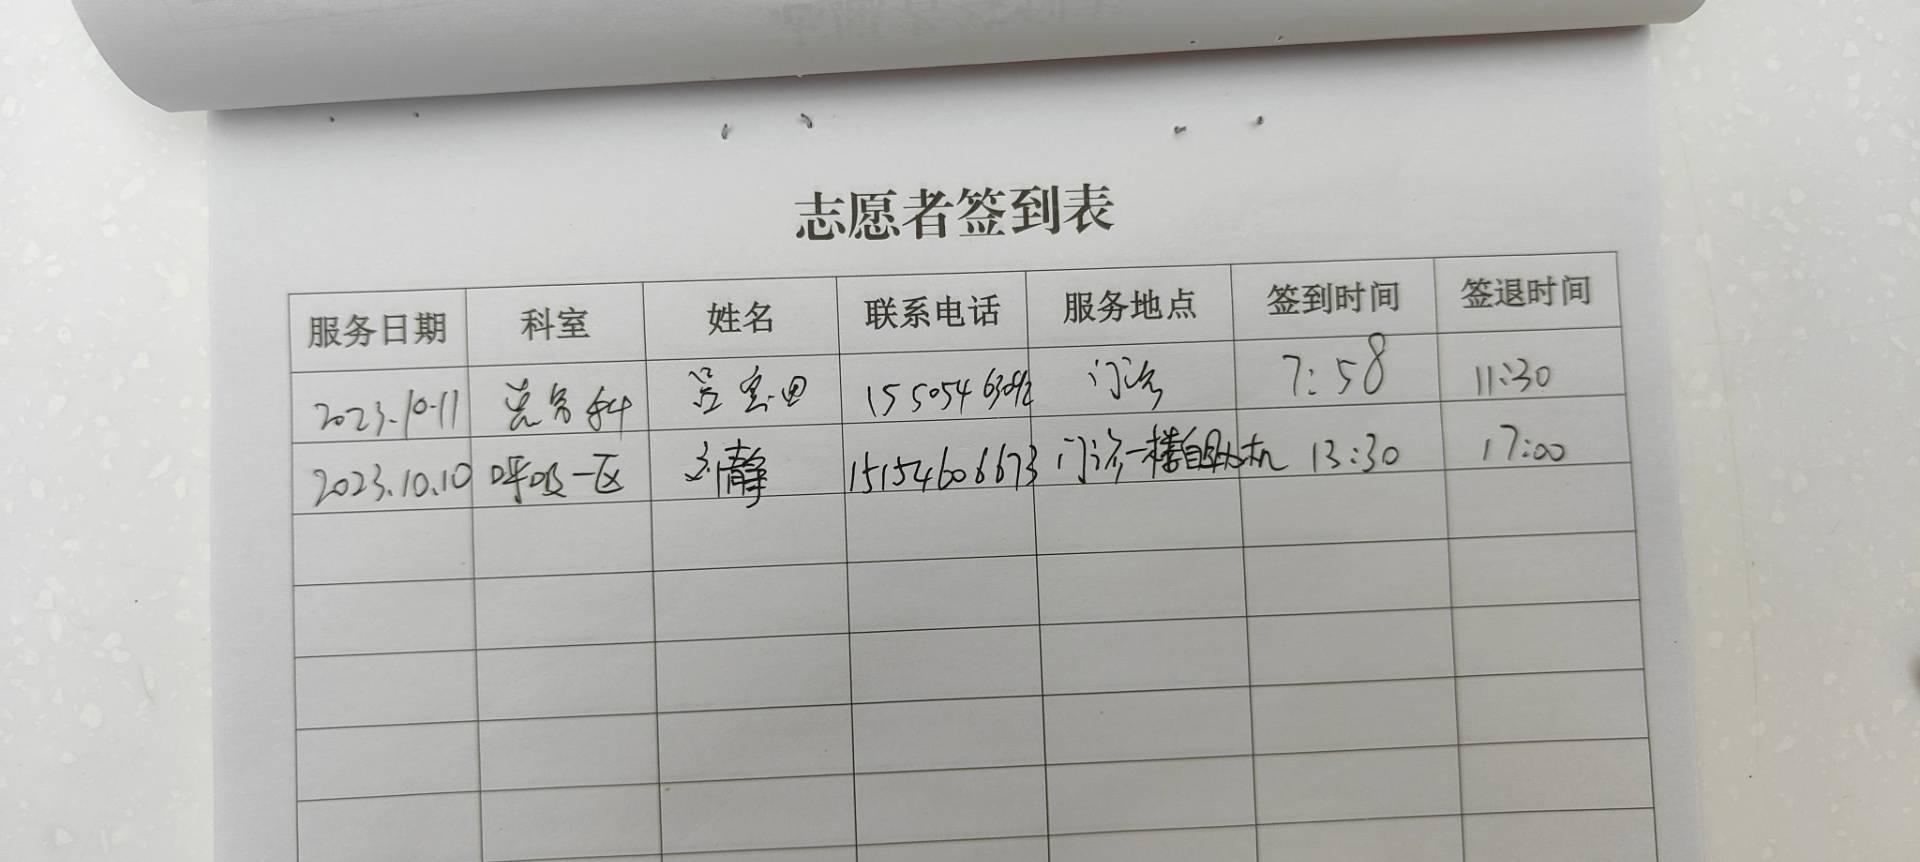 志愿者签到表
服务日期 科室 姓名 联系电话 服务地点 签到时间 签退时间
2023.10.11 门诊 7:58 11:30
2023.10.10 呼吸一区 刘静 15154606673 门诊一楼自助机 13:30 17:00